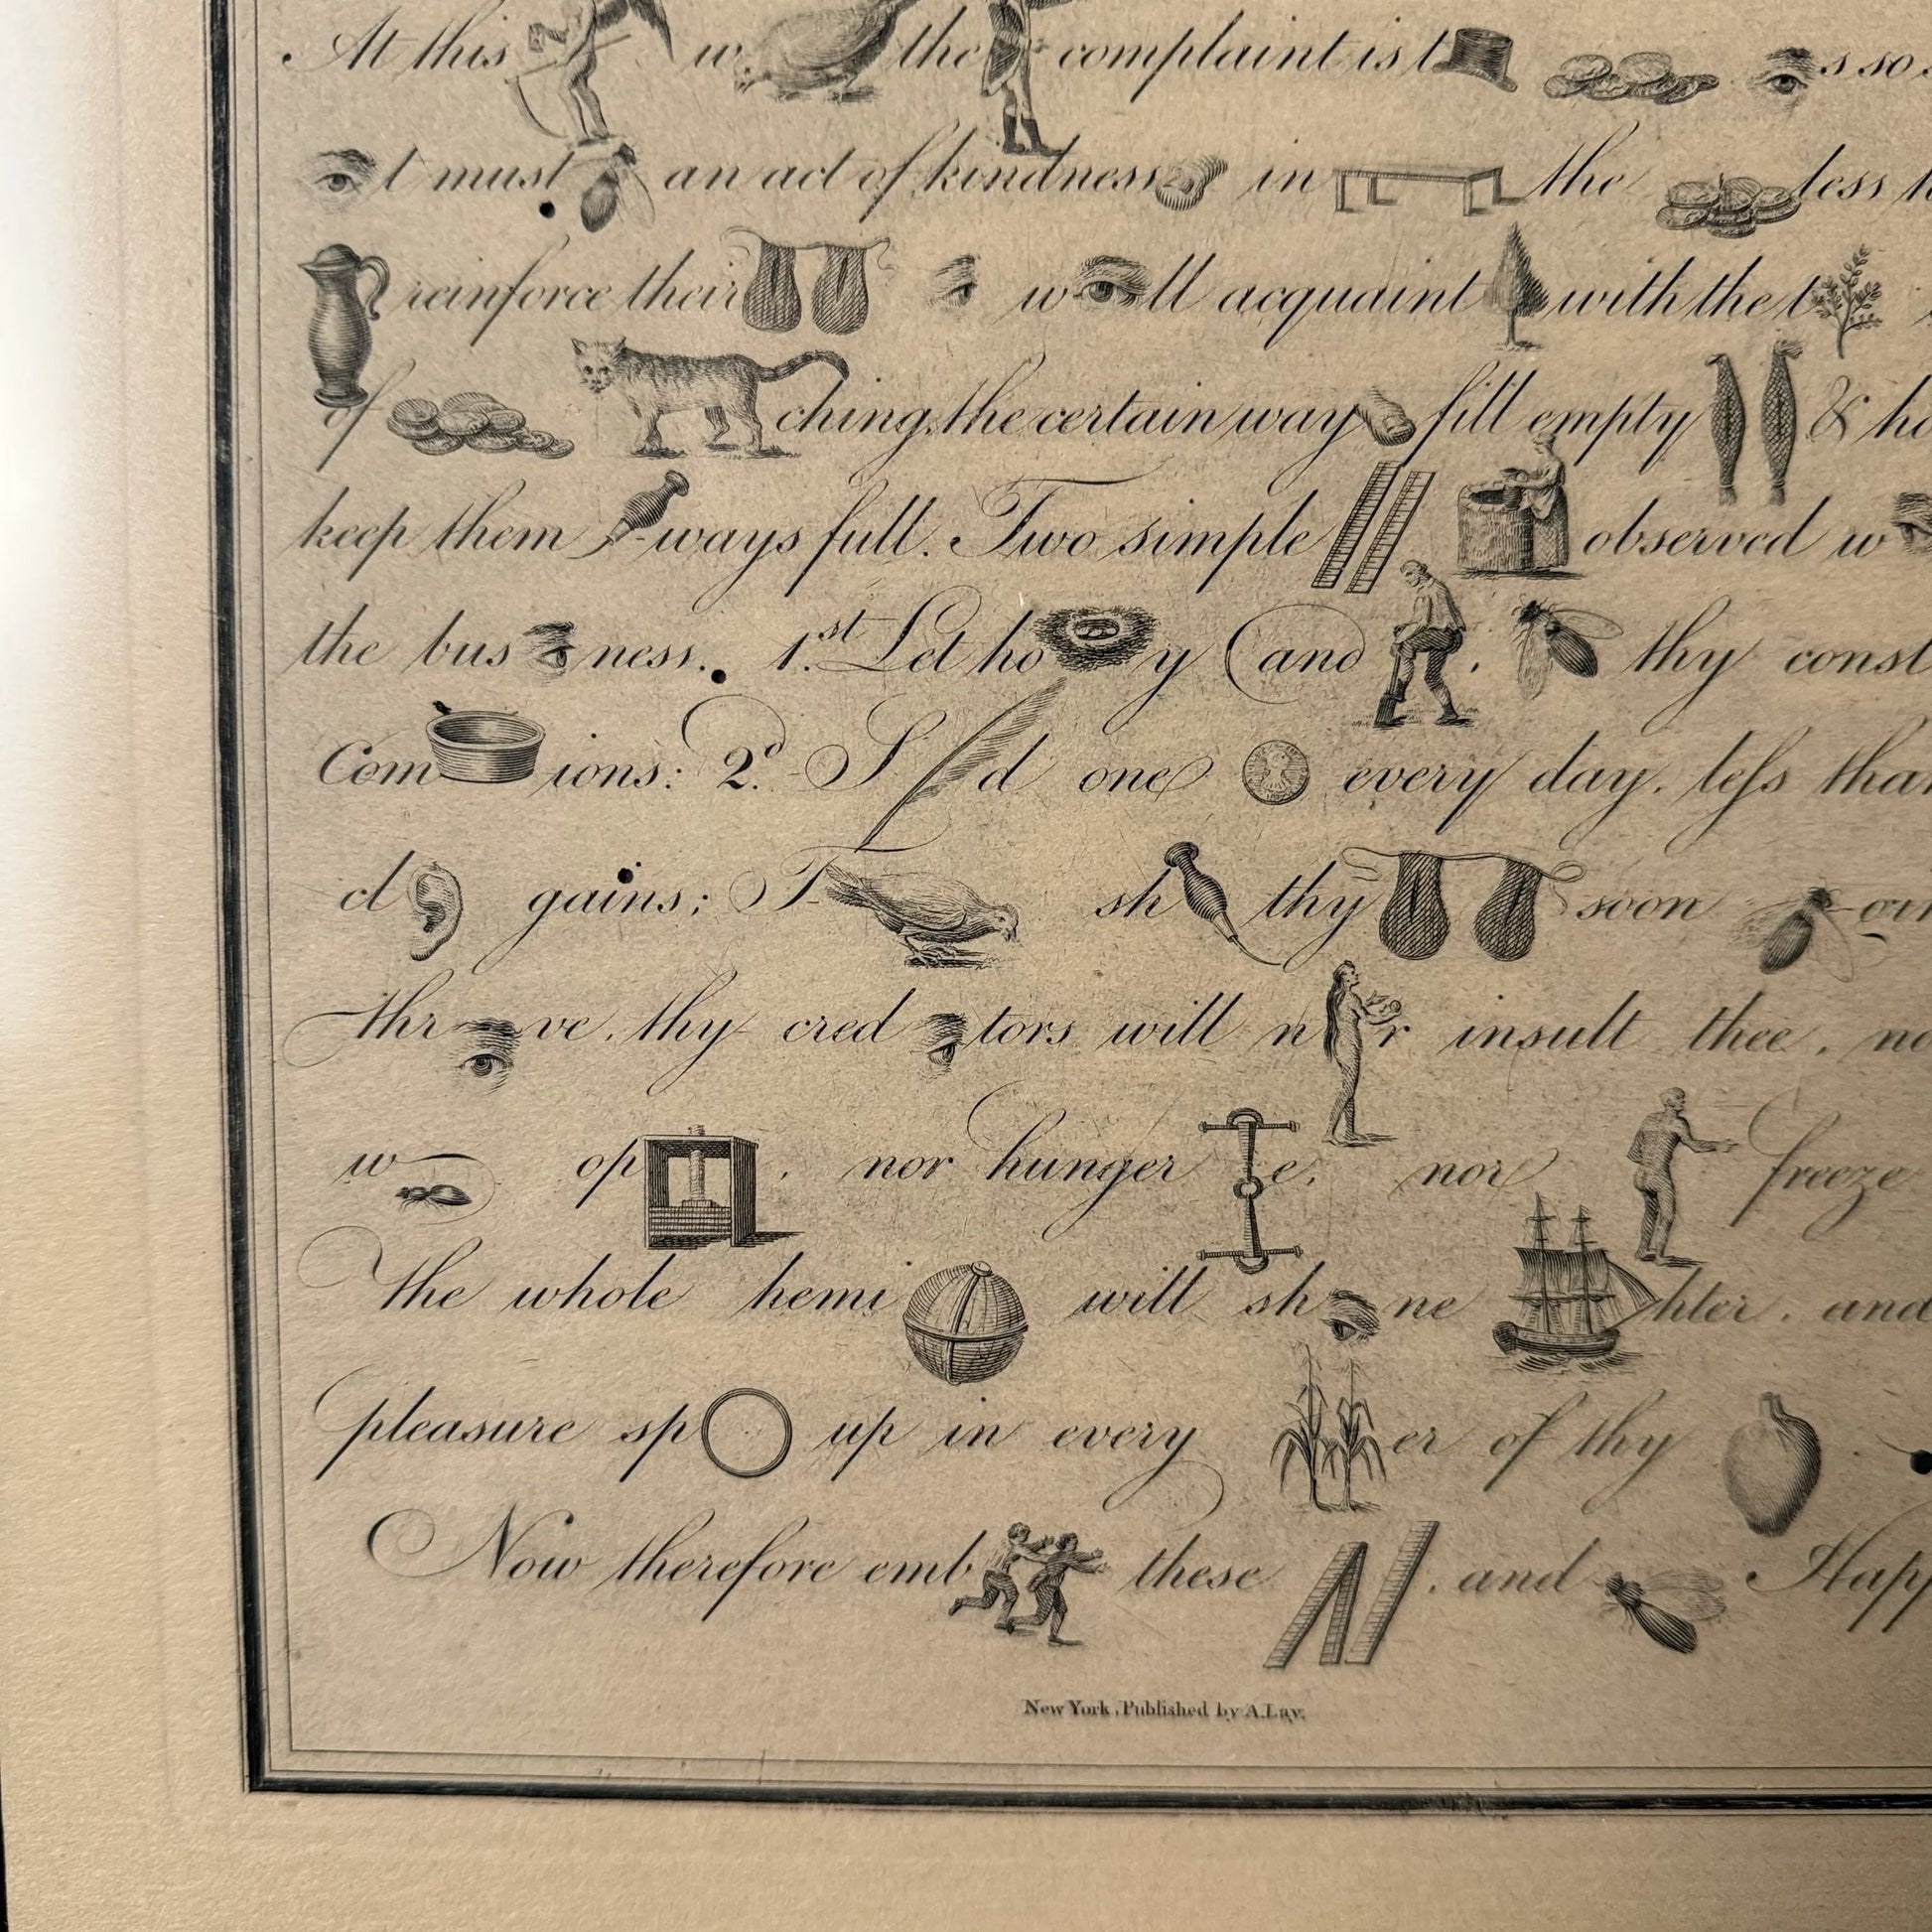 At this w the complaint is t s so
t must an act of kindness in the less
reinforce their w ll acquaint with the t
of ching the certain way fill empty & ho
keep them -ways full. Two simple observed w
the bus ness. 1.st Let ho y (and , thy const
Com ions: 2.d S d one every day, less than
cl gains; T sh thy soon
thr ve, thy cred tors will n r insult thee, no
w op , nor hunger e, nor freeze
The whole hemi will sh ne hter, and
pleasure sp up in every er of thy
Now therefore emb these , and Happ
New York, Published by A. Lay.